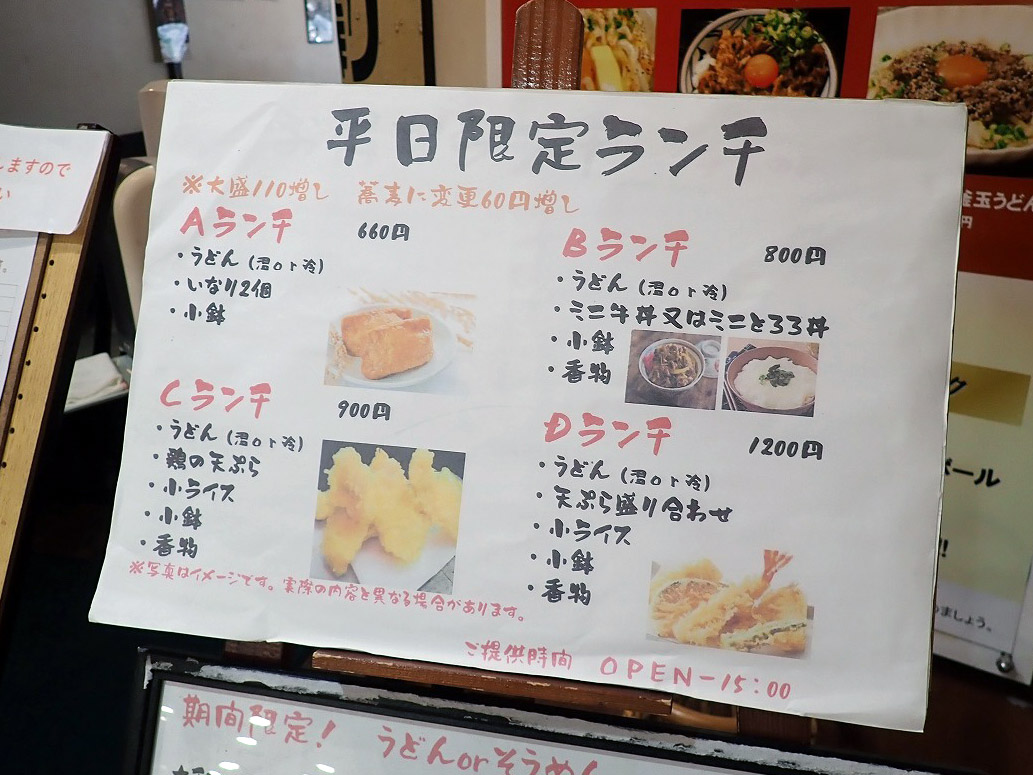 平日限定ランチ
※大盛110増し 蕎麦に変更60円増し
Aランチ 660円
・うどん（温or冷）
・いなり2個
・小鉢
Bランチ 800円
・うどん（温or冷）
・ミニ牛丼又はミニとろろ丼
・小鉢
・香物
Cランチ 900円
・うどん（温or冷）
・鶏の天ぷら
・小ライス
・小鉢
・香物
Dランチ 1200円
・うどん（温or冷）
・天ぷら盛り合わせ
・小ライス
・小鉢
・香物
※写真はイメージです。実際の内容と異なる場合があります。
ご提供時間 OPEN-15:00
期間限定! うどんorそうめん
しますので
い
釜玉うどん
円
ール
ましょう。